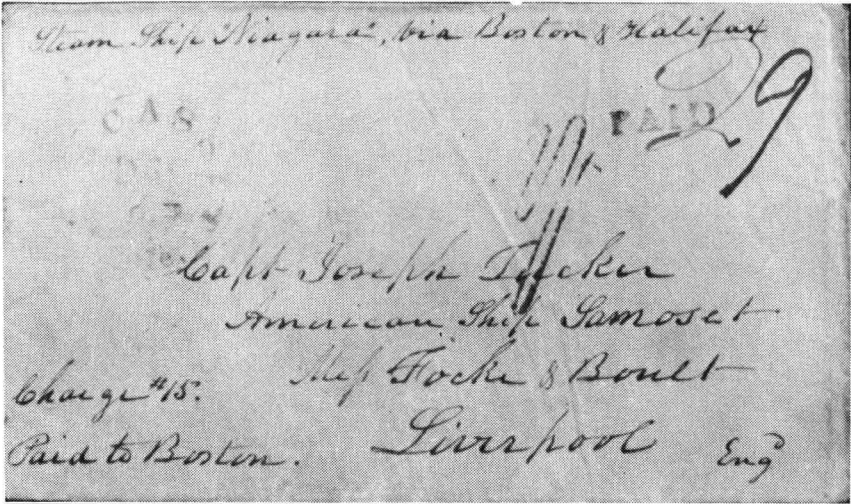 Steam Ship "Niagara", via Boston & Halifax
PAID
29
Capt Joseph Tucker
American Ship Samoset
Mess Focke & Boult
Charge #15.
Liverpool Engd
Paid to Boston.